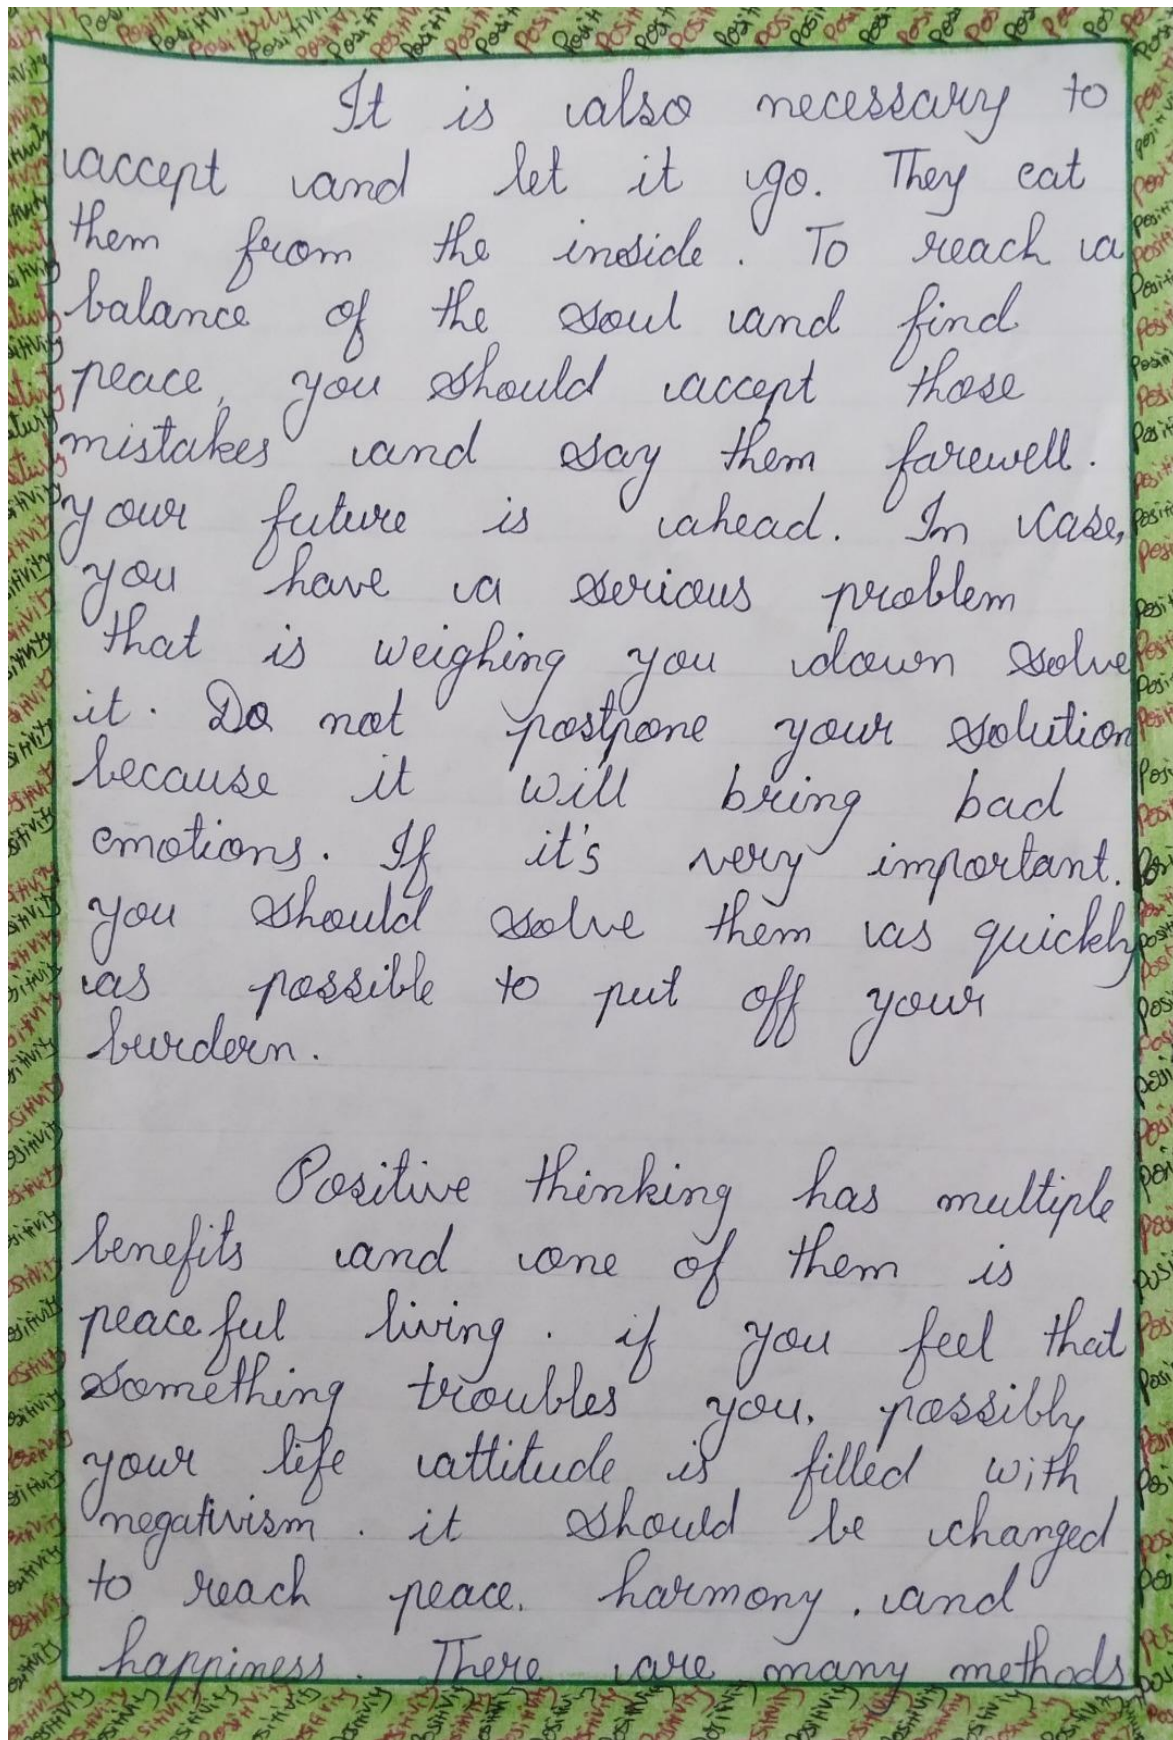 It is also necessary to
accept and let it go. They eat
them from the inside. To reach a
balance of the soul and find
peace, you should accept those
mistakes and say them farewell.
your future is ahead. In case,
you have a serious problem
that is weighing you down solve
it. Do not postpone your solution
because it will bring bad
emotions. If it's very important.
you should solve them as quickly
as possible to put off your
burdern.
Positive thinking has multiple
benefits and one of them is
peaceful living. if you feel that
something troubles you. possibly
your life attitude is filled with
negativism. it should be changed
to reach peace. harmony. and
happiness. There are many methods